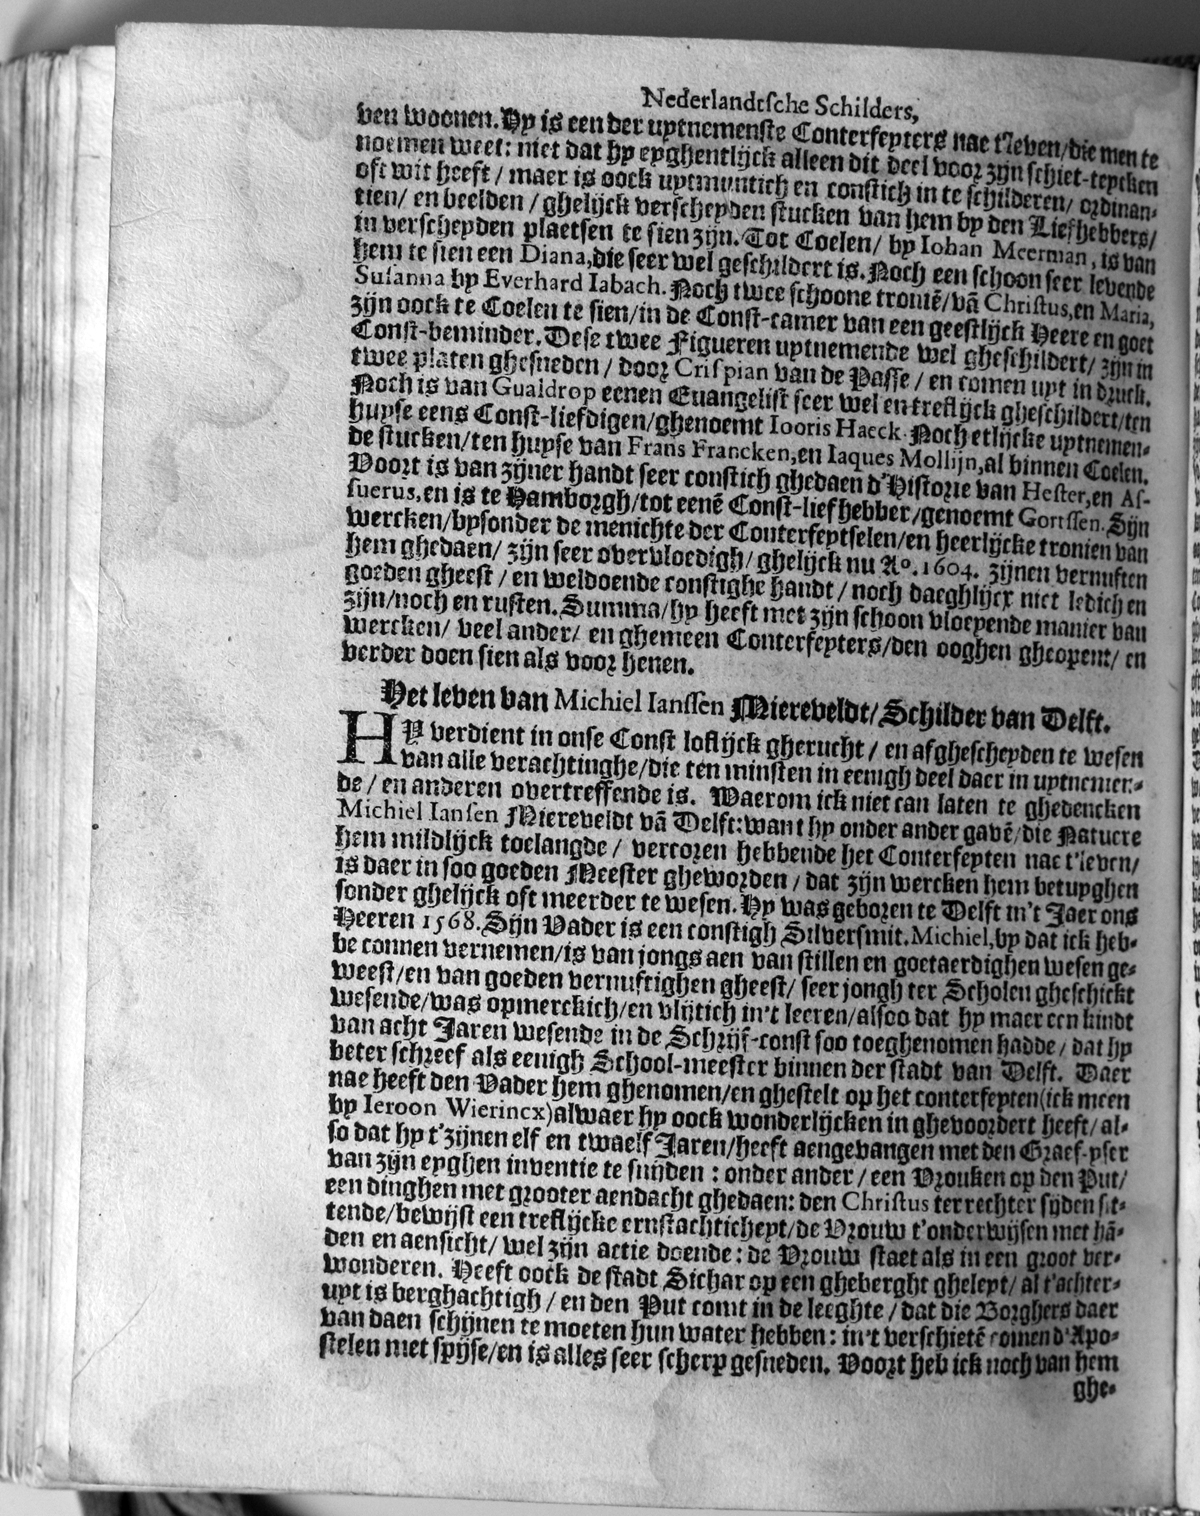 Nederlandtsche Schilders,
ven woonen. Hy is een der uytnemenste Conterfeyters nae t'leven/ die men te
noemen weet: niet dat hy eyghentlijck alleen dit deel voor zijn schiet-teycken
oft wit heeft / maer is oock uytmuntich en constich in te schilderen/ ordinan-
tien/ en beelden / ghelijck verscheyden stucken van hem by den Liefhebbers/
in verscheyden plaetsen te sien zijn. Tot Coelen/ by Iohan Meerman, is van
hem te sien een Diana, die seer wel geschildert is. Noch een schoon seer levende
Susanna by Everhard Iabach. Noch twee schoone troniē/ vā Christus, en Maria,
zijn oock te Coelen te sien/ in de Const-camer van een geestlijck Heere en goet
Const-beminder. Dese twee Figueren uytnemende wel gheschildert/ zijn in
twee platen ghesneden / door Crispian van de Passe / en comen uyt in druck.
Noch is van Gualdrop eenen Euangelist seer wel en treflijck gheschildert/ ten
huyse eens Const-liefdigen/ ghenoemt Iooris Haeck. Noch etlijcke uytnemen-
de stucken/ ten huyse van Frans Francken, en Iaques Mollijn, al binnen Coelen.
Voort is van zijner handt seer constich ghedaen d'Historie van Hester, en As-
suerus, en is te Hamborgh/ tot eenē Const-liefhebber/ genoemt Gortssen. Sijn
wercken/ bysonder de menichte der Conterfeytselen/ en heerlijcke tronien van
hem ghedaen/ zijn seer overvloedigh/ ghelijck nu Aº. 1604. zijnen vernuften
goeden gheest / en weldoende constighe handt / noch daeghlijcx niet ledich en
zijn/ noch en rusten. Summa/ hy heeft met zijn schoon vloeyende manier van
wercken/ veel ander/ en ghemeen Conterfeyters/ den ooghen gheopent/ en
verder doen sien als voor henen.
Het leven van Michiel Ianssen Miereveldt/ Schilder van Delft.
HY verdient in onse Const loflijck gherucht / en afghescheyden te wesen
van alle verachtinghe/ die ten minsten in eenigh deel daer in uytnemen-
de / en anderen overtreffende is. Waerom ick niet can laten te ghedencken
Michiel Iansen Miereveldt vā Delft: want hy onder ander gavē/ die Natuere
hem mildlijck toelangde / vercoren hebbende het Conterfeyten nae t'leven/
is daer in soo goeden Meester gheworden / dat zijn wercken hem betuyghen
sonder ghelijck oft meerder te wesen. Hy was geboren te Delft in't Jaer ons
Heeren 1568. Sijn Vader is een constigh Silversmit. Michiel, by dat ick heb-
be connen vernemen/ is van jongs aen van stillen en goetaerdighen wesen ge-
weest/ en van goeden vernuftighen gheest/ seer jongh ter Scholen gheschickt
wesende/ was opmerckich/ en vlijtich in't leeren/ alsoo dat hy maer een kindt
van acht Jaren wesende in de Schrijf-const soo toeghenomen hadde / dat hy
beter schreef als eenigh School-meester binnen der stadt van Delft. Daer
nae heeft den Vader hem ghenomen/ en ghestelt op het conterfeyten (ick meen
by Ieroon Wierincx) alwaer hy oock wonderlijcken in ghevoordert heeft/ al-
so dat hy t'zijnen elf en twaelf Jaren/ heeft aengevangen met den Graef-yser
van zijn eyghen inventie te snijden : onder ander / een Vrouken op den Put/
een dinghen met grooter aendacht ghedaen: den Christus ter rechter sijden sit-
tende/ bewijst een treflijcke ernstachticheyt/ de Vrouw t'onderwijsen met hā-
den en aensicht/ wel zijn actie doende : de Vrouw staet als in een groot ver-
wonderen. Heeft oock de stadt Sichar op een gheberght gheleyt/ al t'achter-
uyt is berghachtigh / en den Put comt in de leeghte / dat die Borghers daer
van daen schijnen te moeten hun water hebben : in't verschietē comen d'Apo-
stelen met spijse/ en is alles seer scherp gesneden. Voort heb ick noch van hem
ghe-